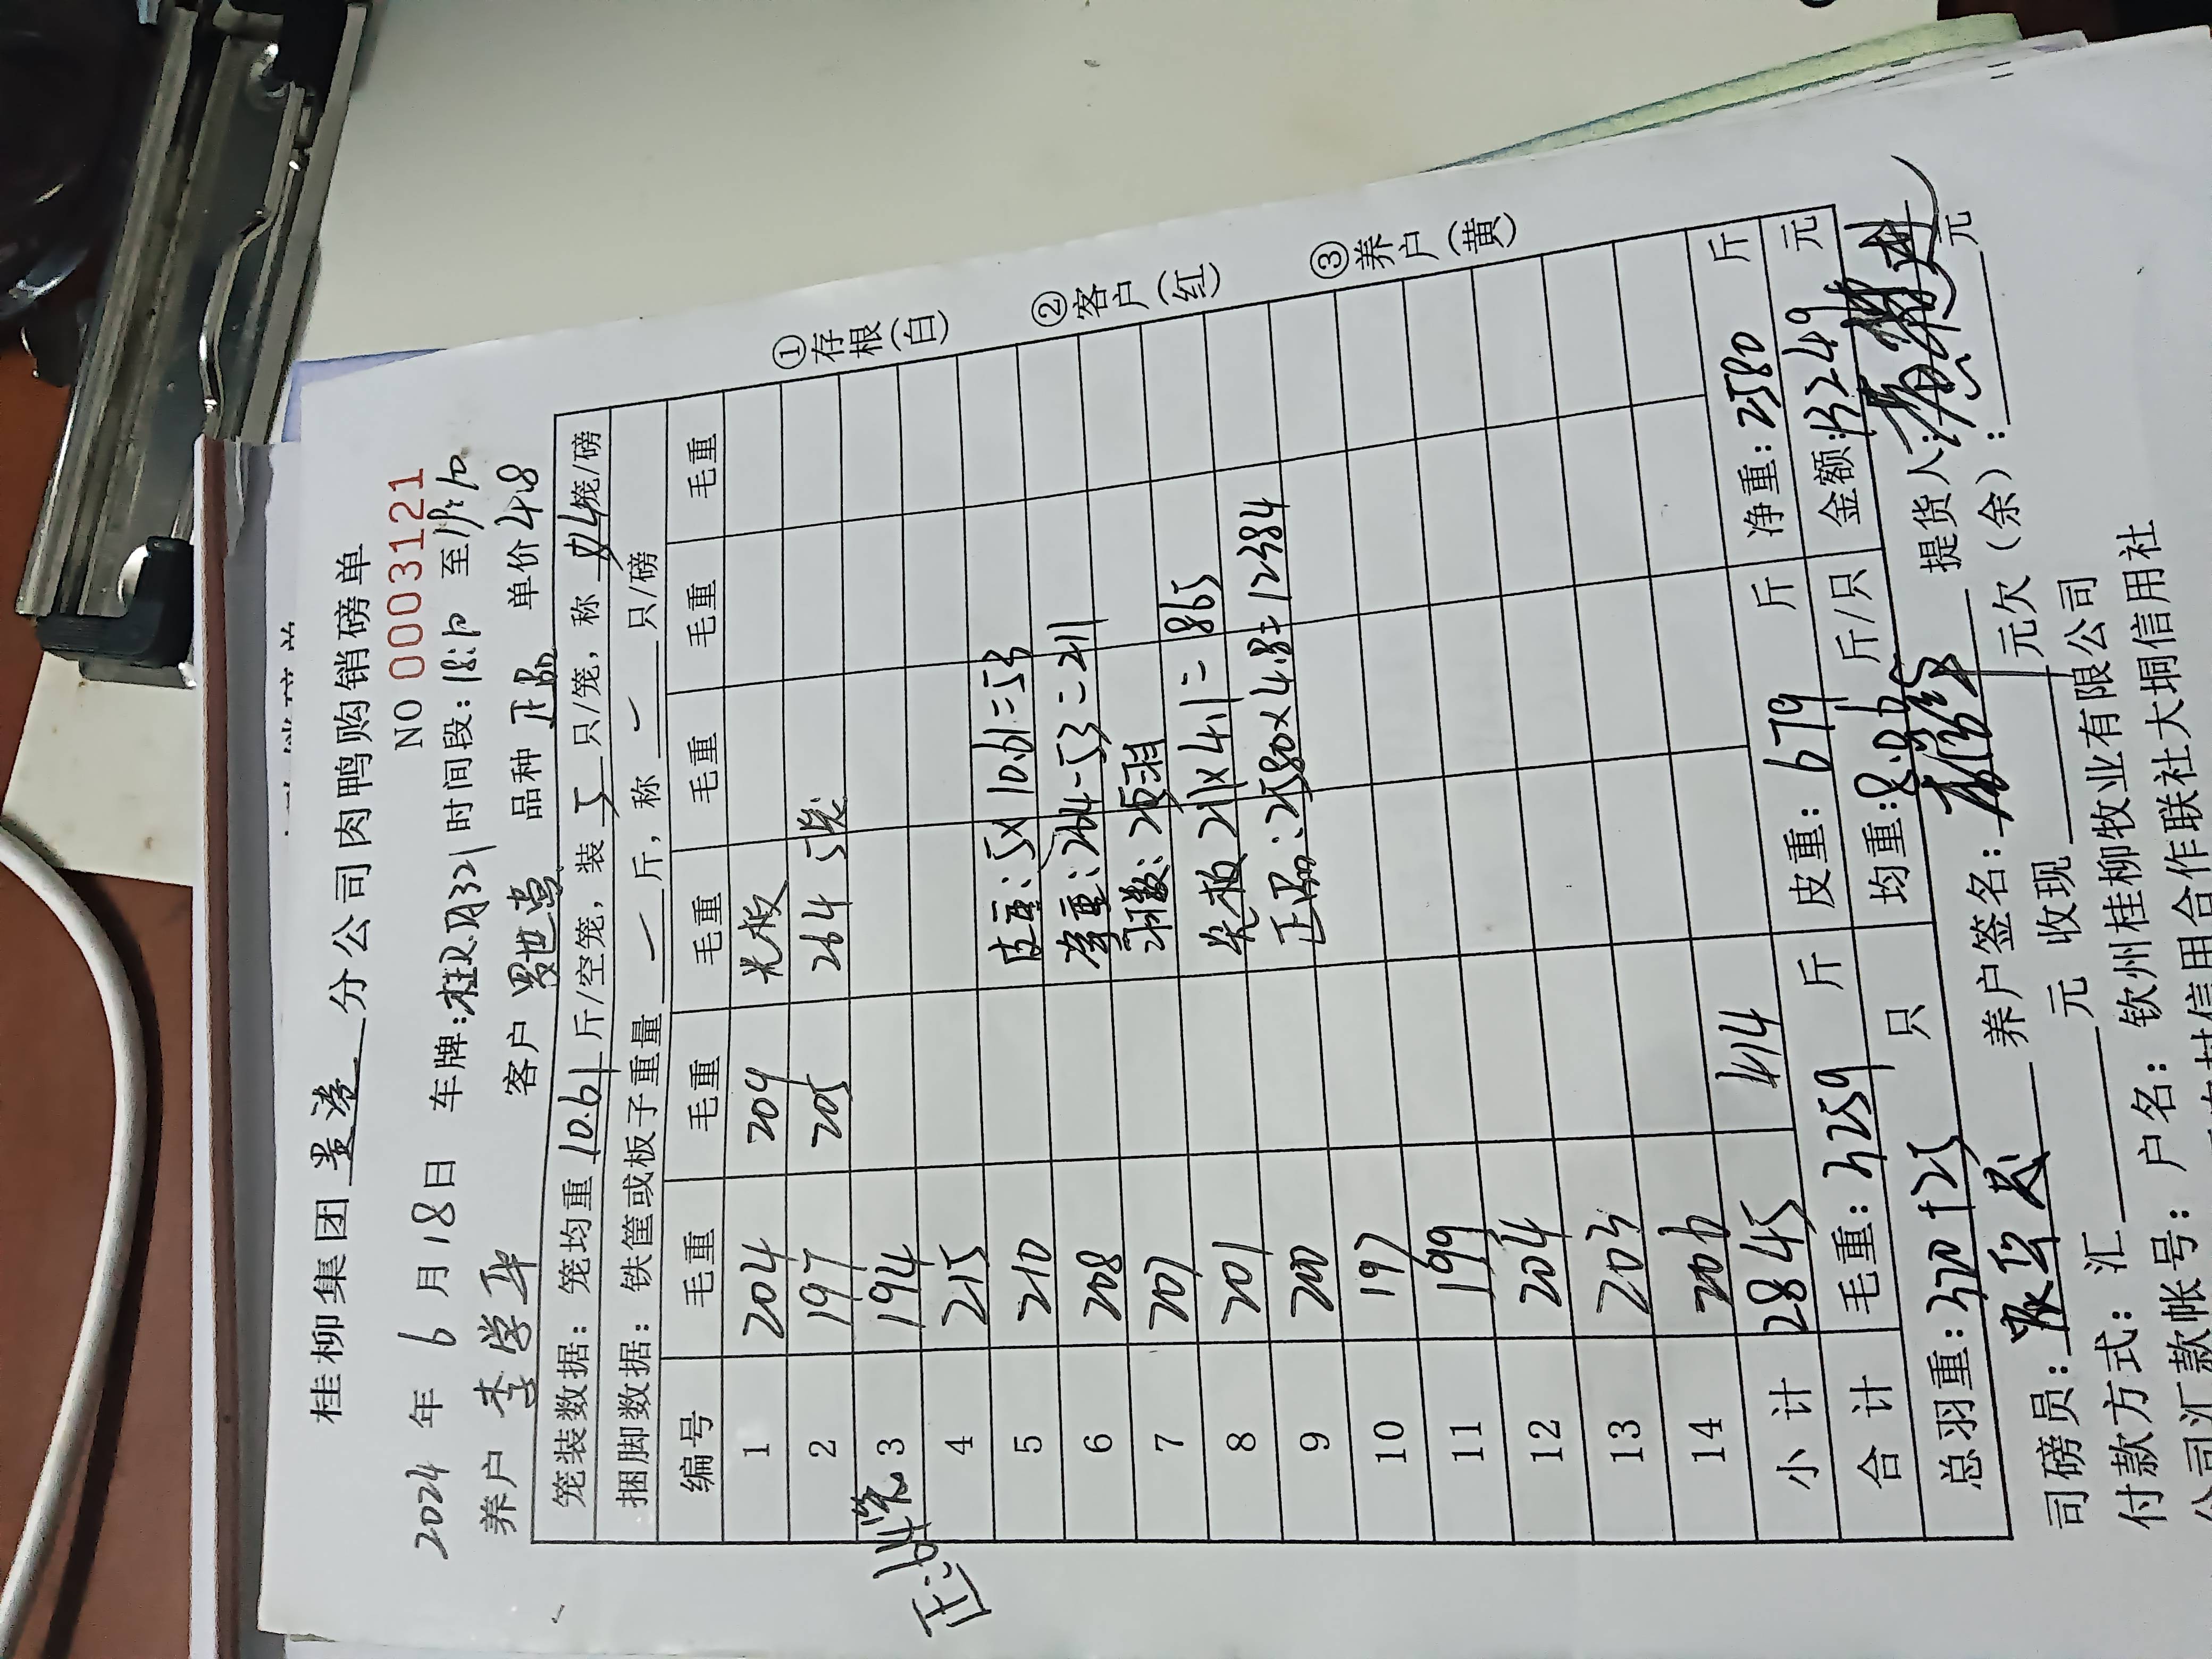 桂柳集团 分公司肉鸭购销磅单
NO 0003121
2024年6月18日 车牌: 时间段:18:10 至
养户 李学平 客户 品种 正品 单价 4.8
笼装数据：笼均重10.61斤/空笼，装5只/笼，称4笼/磅
捆脚数据：铁筐或板子重量 斤，称 只/磅
编号 毛重 毛重 毛重 毛重 毛重 毛重
1 204 209 光板
2 197 205 264 5笼
正:64笼 3 194
4 215
5 210 皮重:5×10.61=53
6 208 净重:264-53=211
7 207 羽数:25羽
8 201 光板 211×4.1=865
9 200 正品:2580×4.8=12384
10 197
11 199
12 204
13 203
14 206
小计 2845 414 皮重：679 斤 净重：2580 斤
合计 毛重：3259 斤 均重：8.06 斤/只 金额:13249 元
总羽重：320+25 只
司磅员： 养户签名： 提货人：
付款方式：汇 元 收现 元欠（余）： 元
户名：钦州桂柳牧业有限公司
公司汇款帐号： 信用合作联社大垌信用社
①存根(白)
②客户(红)
③养户(黄)